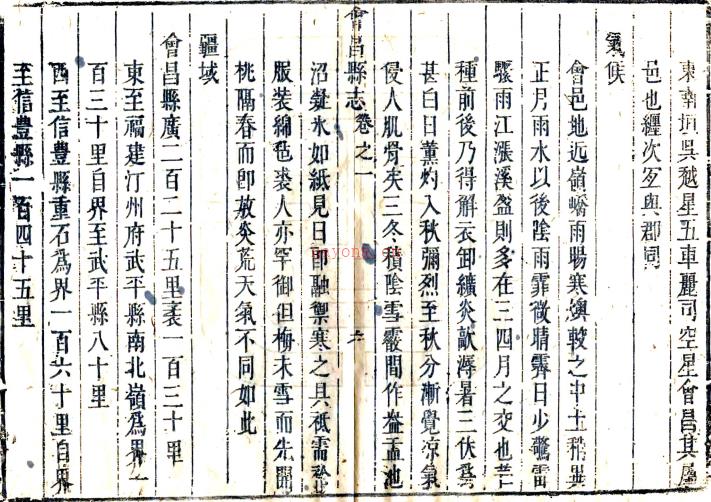 東南垣吳越星五車麗司空星會昌其屬
邑也纏次歹與郡同
氣候
會邑地近嶺嶠雨暘寒燠較之中土稍異
正月雨水以後陰雨霏微晴霽日少驚雷
驟雨江漲溪盈則多在三四月之交也芒
種前後乃得解衣卸纊炎歊溽暑三伏爲
甚白日薰灼入秋彌烈至秋分漸覺涼氣
侵人肌骨矣三冬積陰雪霰間作盎盂池
會昌縣志 卷之一 六
沼凝氷如紙見日卽融禦寒之具祗需
服裝綿毡裘人亦罕御但梅未雪而先開
桃隔春而卽敷炎荒天氣不同如此
疆域
會昌縣廣二百二十五里袤一百三十里
東至福建汀州府武平縣南北嶺爲界一
百三十里自界至武平縣八十里
西至信豊縣重石爲界一百六十里自界
至信豊縣一百四十五里